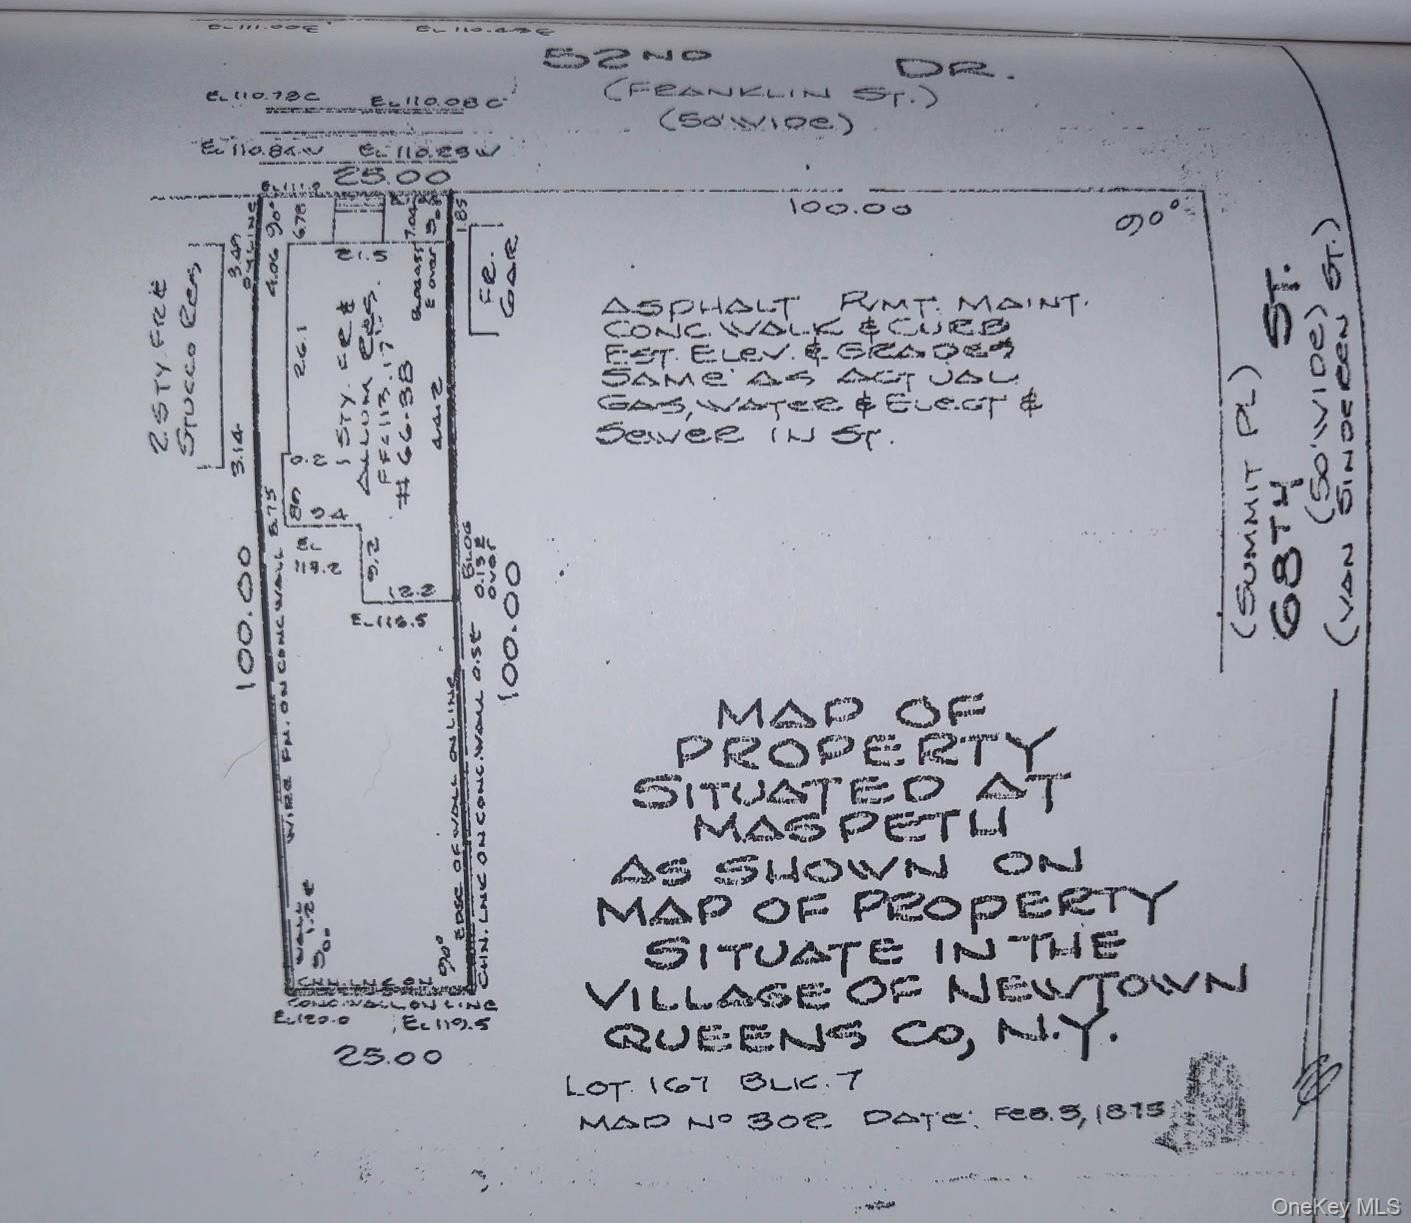 EL 111.00E EL 110.43E
52ND DR.
(FRANKLIN ST.)
(50' WIDE)
EL 110.78C EL 110.08C
EL 110.84W EL 110.23W
25.00
100.00
90°
90°
6.78
7.04
1.85
21.5
3.49
4.06
2 STY. FR &
STUCCO RES.
FR.
GAR
26.1
1 STY. FR &
ALLUM RES.
FF=113.17
# 66-38
44.2
3.14
0.2
8.75
9.4
9.2
12.2
EL 116.5
BLDG
0.13E
OVER
100.00
100.00
WIRE FN. ON CONC WALL
EDGE OF WALL ON LINE
CHN. LNK ON CONC. WALL 0.3E
WALL
1.2E
90°
90°
CHN. LNK ON
CONC. WALL ON LINE
EL 120.0 EL 119.5
25.00
ASPHALT PVMT. MAINT.
CONC. WALK & CURB
EST. ELEV. & GRADES
SAME AS ACTUAL
GAS, WATER & ELECT &
SEWER IN ST.
(SUMMIT PL)
68TH ST.
(50' WIDE)
(VAN SINDEREN ST.)
MAP OF
PROPERTY
SITUATED AT
MASPETH
AS SHOWN ON
MAP OF PROPERTY
SITUATE IN THE
VILLAGE OF NEWTOWN
QUEENS CO, N.Y.
LOT. 167 BLK. 7
MAP NO 302 DATE: FEB. 3, 1875
OneKey MLS